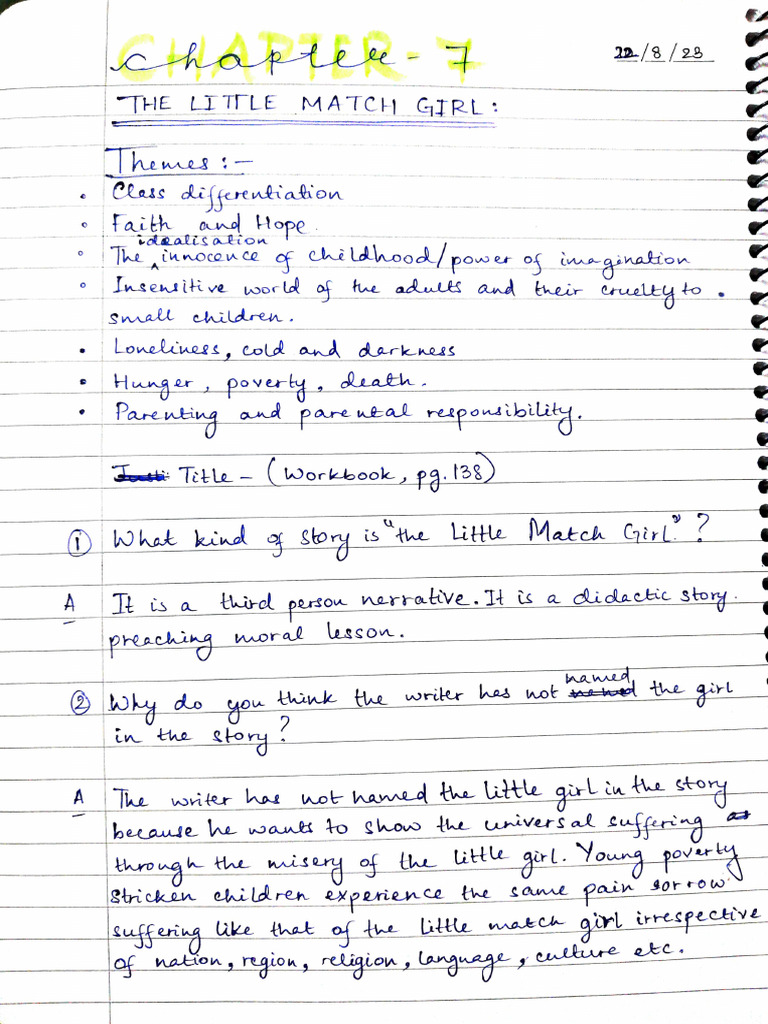 Chapter - 7
22/8/23
THE LITTLE MATCH GIRL:
Themes:-
• Class differentiation
• Faith and Hope.
idealisation
• The ^ innocence of childhood/power of imagination
• Insensitive world of the adults and their cruelty to .
small children.
• Loneliness, cold and darkness
• Hunger, poverty, death.
• Parenting and parental responsibility.
Title - (Workbook, pg.138)
① What kind of story is "the Little Match Girl."?
A It is a third person narrative. It is a didactic story.
preaching moral lesson.
named
② Why do you think the writer has not the girl
in the story?
A The writer has not named the little girl in the story
because he wants to show the universal suffering
through the misery of the little girl. Young poverty
stricken children experience the same pain sorrow
suffering like that of the little match girl irrespective
of nation, region, religion, language, culture etc.